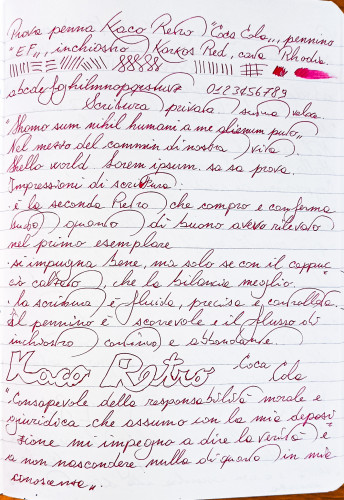 Prova penna Kaco Retro "Coca Cola„, pennino
"EF„, inchiostro Karkos Red, carta Rhodia.
abcdefghilmnopqrstuvz 0123456789
Scrittura privata scrive veloce
"Homo sum nihil humani a me alienum puto„
Nel mezzo del cammin di nostra vita
Hello world lorem ipsum. sa sa prova.
Impressioni di scrittura:
. è la seconda Retro che compro e conferma
quanto di buono avevo rilevato
nel primo esemplare
. si impugna bene, ma solo se con il cappuc
cio calzato, che la bilancia meglio.
. la scrittura è fluida, precisa e controllata.
. Il pennino è scorrevole e il flusso di
inchiostro continuo e abbondante.
Kaco Retro Coca
Cola
"Consapevole della responsabilità morale e
giuridica che assumo con la mia deposi
zione mi impegno a dire la verità e
a non nascondere nulla di quanto in mia
conoscenza„.